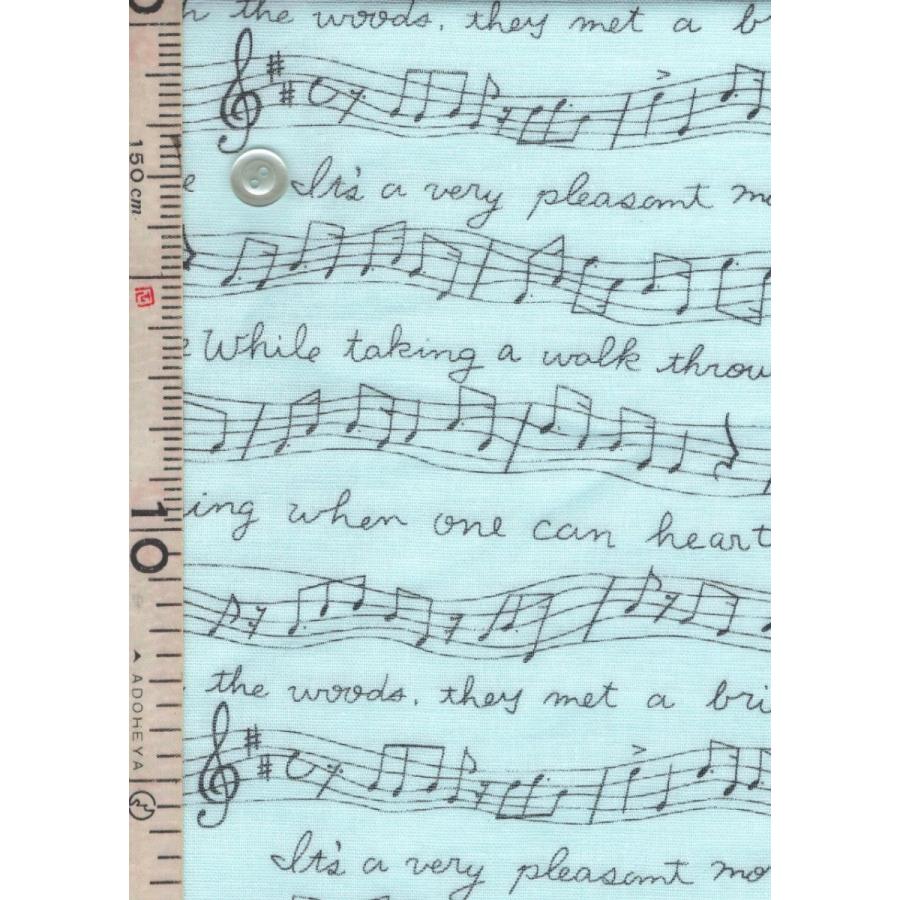 the woods, they met a b
It's a very pleasant mo
While taking a walk throu
ing when one can heart
the woods, they met a bri
It's a very pleasant mo
150cm
10
ADOHEYA